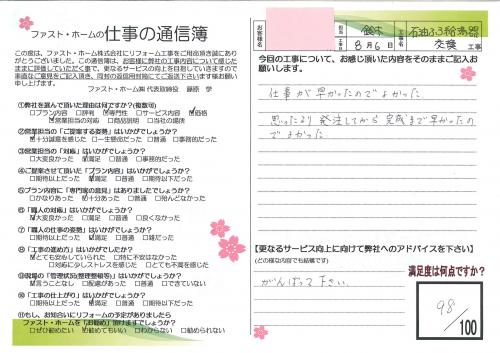 ファスト・ホームの仕事の通信簿
この度は、ファスト・ホーム株式会社にリフォーム工事をご用命頂き誠にあり
がとうございました。この通信簿は、お客様に弊社の工事内容について感じた
ままに評価していただく事で、更なるサービスの向上を目的としていきますので
率直なご意見をご記入頂き、同封の返信用封筒にてご返送下さいます様お願い
申し上げます。
ファスト・ホーム㈱ 代表取締役 藤原 学
①弊社を選んで頂いた理由は何ですか?(複数可)
□プラン内容 □評判 ☑専門性 □サービス内容 ☑価格
☑営業担当の対応 □商品説明 □当社の提携
②営業担当の「ご提案する姿勢」はいかがでしょうか?
☑十分誠意を感じた □一生懸命だった □普通 □事務的だった
③営業担当の「対応」はいかがでしょうか?
□大変良かった ☑満足 □普通 □事務的だった
④ご提案させて頂いた「プラン内容」はいかがでしょうか?
□期待以上だった ☑満足 □普通 □期待以下だった
⑤プラン内容に「専門家の意見」はありましたでしょうか?
□かなりあった ☑十分あった □普通 □殆んどなかった
⑥「職人の対応」はいかがでしょうか?
☑大変良かった □満足 □普通 □良くなかった
⑦「職人の仕事の姿勢」はいかがでしょうか?
□期待以上だった ☑満足 □普通 □雑だった
⑧「工事の進め方」はいかがでしたか?
☑とても安心していられた □特に不安はなかった
□気持に少しストレスを感じた □とても不満を感じた
⑨現場の「管理状況(整理整頓等)」はいかがでしょうか?
☑言うことなし □配慮があった □普通 □できていない
⑩「工事の仕上がり」はいかがでしょうか?
□期待以上だった ☑満足 □普通 □期待以下だった
⑪もし、お知合いにリフォームの予定がありましたら
ファスト・ホームを「お勧め」頂けますでしょうか?
□ぜひ勧めたい ☑勧めてもいい □わからない □勧められない
お客様名
工事日
鈴木
8月6日
工事名
石油ふろ給湯器
交換
工事
今回の工事について、お感じ頂いた内容をそのままご記入お
願いします。
仕事が早かったのでよかった
思ったより発注してから完成まで早かったの
でよかった
【更なるサービス向上に向けて弊社へのアドバイスを下さい】
(どの様な内容でも結構です)
がんばって下さい。
満足度は何点ですか?
98
/100